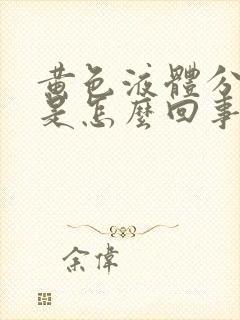 黃色液體分
是怎麼回事
余偉